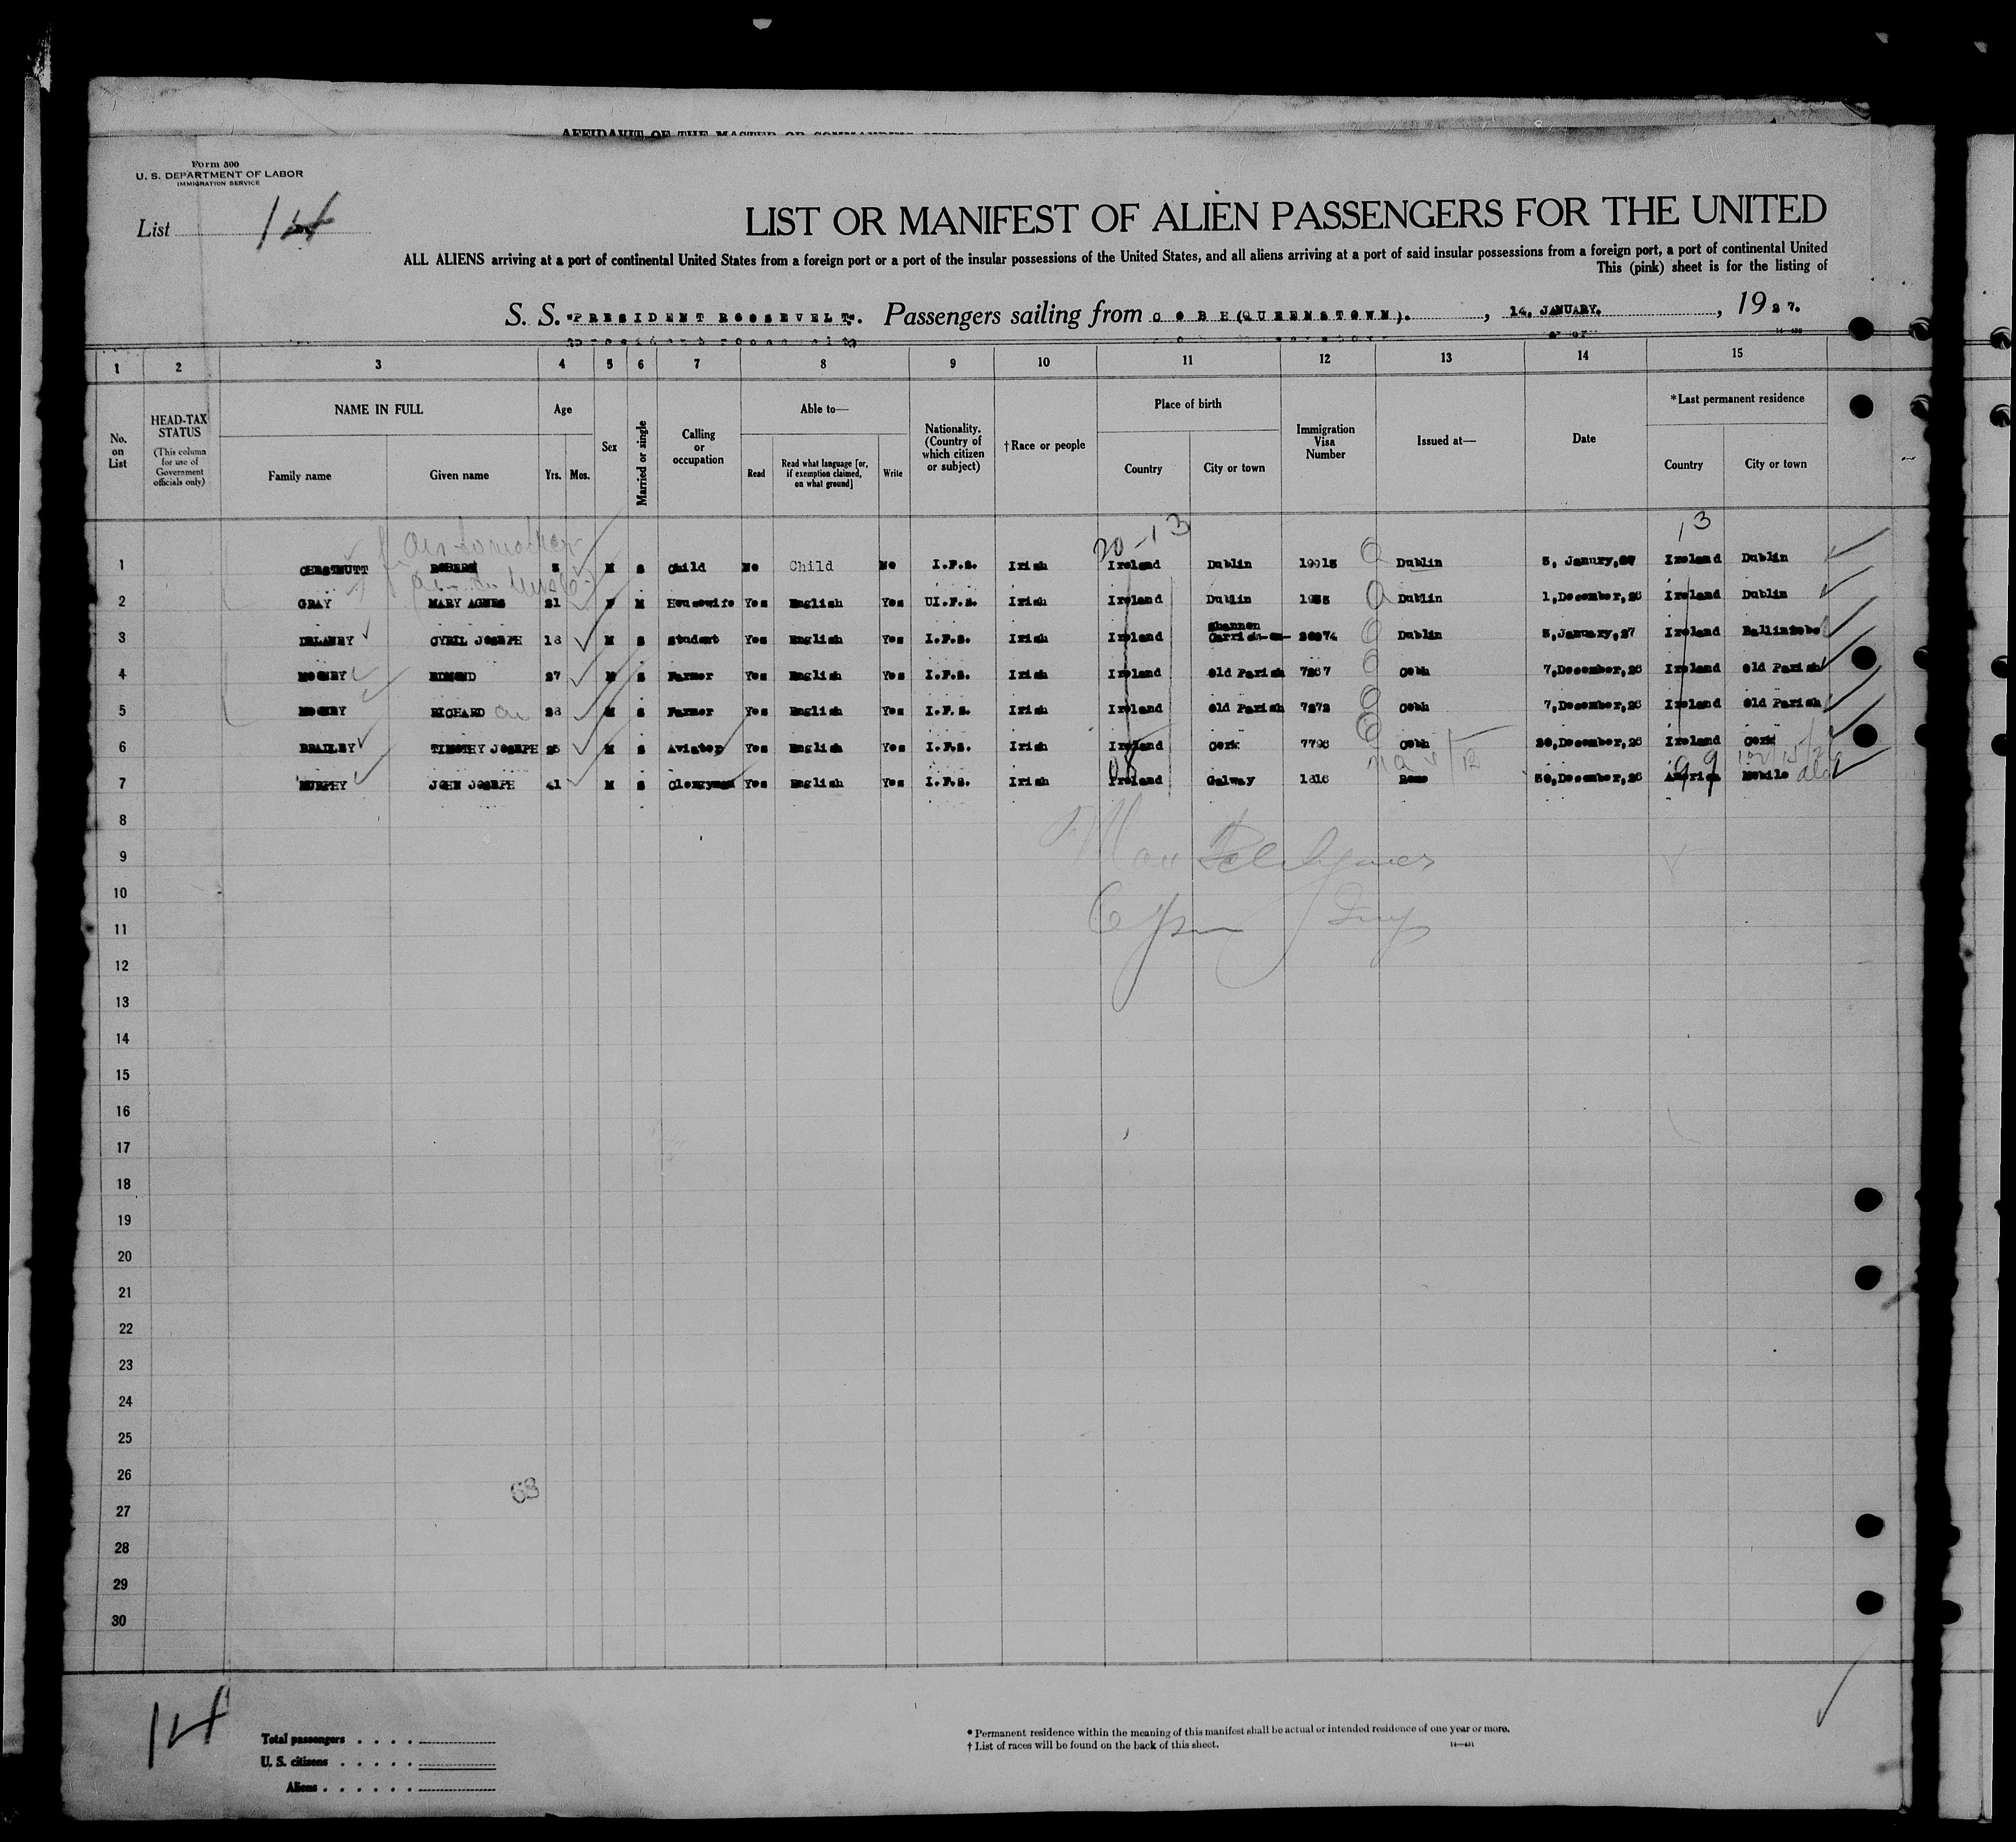 AFFIDAVIT OF THE MASTER OR COMMANDING
Form 500
U. S. DEPARTMENT OF LABOR
IMMIGRATION SERVICE
List 14
LIST OR MANIFEST OF ALIEN PASSENGERS FOR THE UNITED
ALL ALIENS arriving at a port of continental United States from a foreign port or a port of the insular possessions of the United States, and all aliens arriving at a port of said insular possessions from a foreign port, a port of continental United
This (pink) sheet is for the listing of
S. S. "PRESIDENT ROOSEVELT". Passengers sailing from COBH (QUEENSTOWN). , 14, JANUARY. , 1927.
1 2 3 4 5 6 7 8 9 10 11 12 13 14 15
No. on List
HEAD-TAX STATUS (This column for use of Government officials only)
NAME IN FULL Family name Given name
Age Yrs. Mos.
Sex
Married or single
Calling or occupation
Able to— Read Read what language [or, if exemption claimed, on what ground] Write
Nationality. (Country of which citizen or subject)
†Race or people
Place of birth Country City or town
Immigration Visa Number
Issued at—
Date
*Last permanent residence Country City or town
20-13 13
1 CHESTNUTT ROBERT 5 M S Child No Child No I.F.S. Irish Ireland Dublin Dublin 5, Janury,27 Ireland Dublin
2 GRAY MARY AGNES 21 F M Housewife Yes English Yes UI.F.S. Irish Ireland Dublin Dublin 1,December,26 Ireland Dublin
3 DELANEY CYRIL JOSEPH 18 M S Student Yes English Yes I.F.S. Irish Ireland Carrick-on-Shannon Dublin 5,January,27 Ireland
4 MOONEY EDMOND 27 M S Farmer Yes English Yes I.F.S. Irish Ireland Old Parish 7267 Cobh 7,December,26 Ireland Old Parish
5 MOONEY RICHARD 28 M S Farmer Yes English Yes I.F.S. Irish Ireland Old Parish 7272 Cobh 7,December,26 Ireland Old Parish
6 BRADLEY TIMOTHY JOSEPH 25 M S Aviator Yes English Yes I.F.S. Irish Ireland Cork Cobh 20,December,26 Ireland Cork
7 MURPHY JOHN JOSEPH 41 M S Clergyman Yes English Yes I.F.S. Irish Ireland Galway 1816 Rome 30,December,26 America Mobile Ala
8
9
10
11
12
13
14
15
16
17
18
19
20
21
22
23
24
25
26
27
28
29
30
68
14
Total passengers
U. S. citizens
Aliens
* Permanent residence within the meaning of this manifest shall be actual or intended residence of one year or more.
† List of races will be found on the back of this sheet.